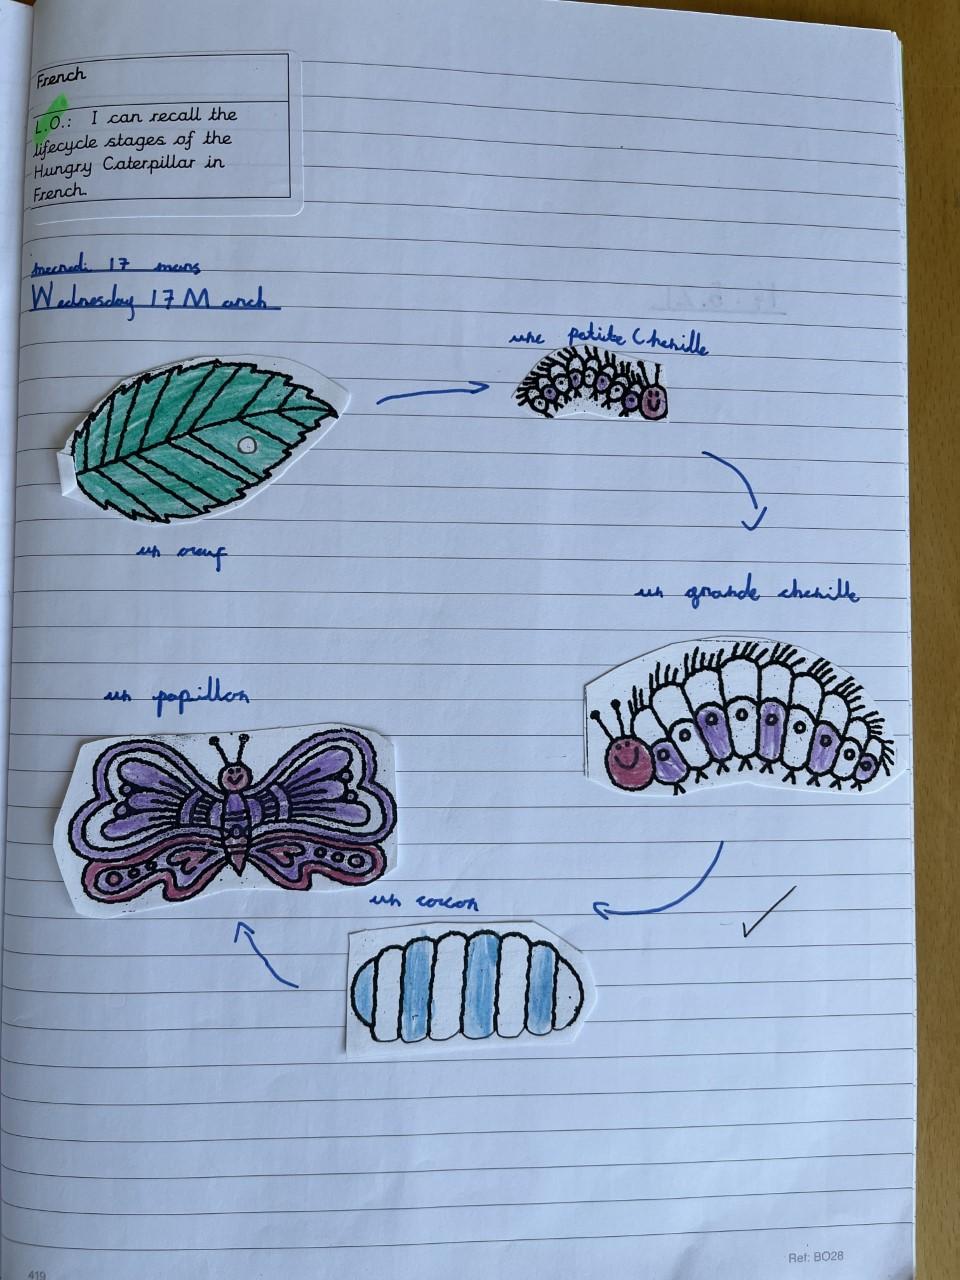 French
L.O.: I can recall the
lifecycle stages of the
Hungry Caterpillar in
French.
mecredi 17 mars
Wednesday 17 March
une petite Chenille
un oeuf
un grande chenille
un papillon
un cocon
Ref: BO28
419